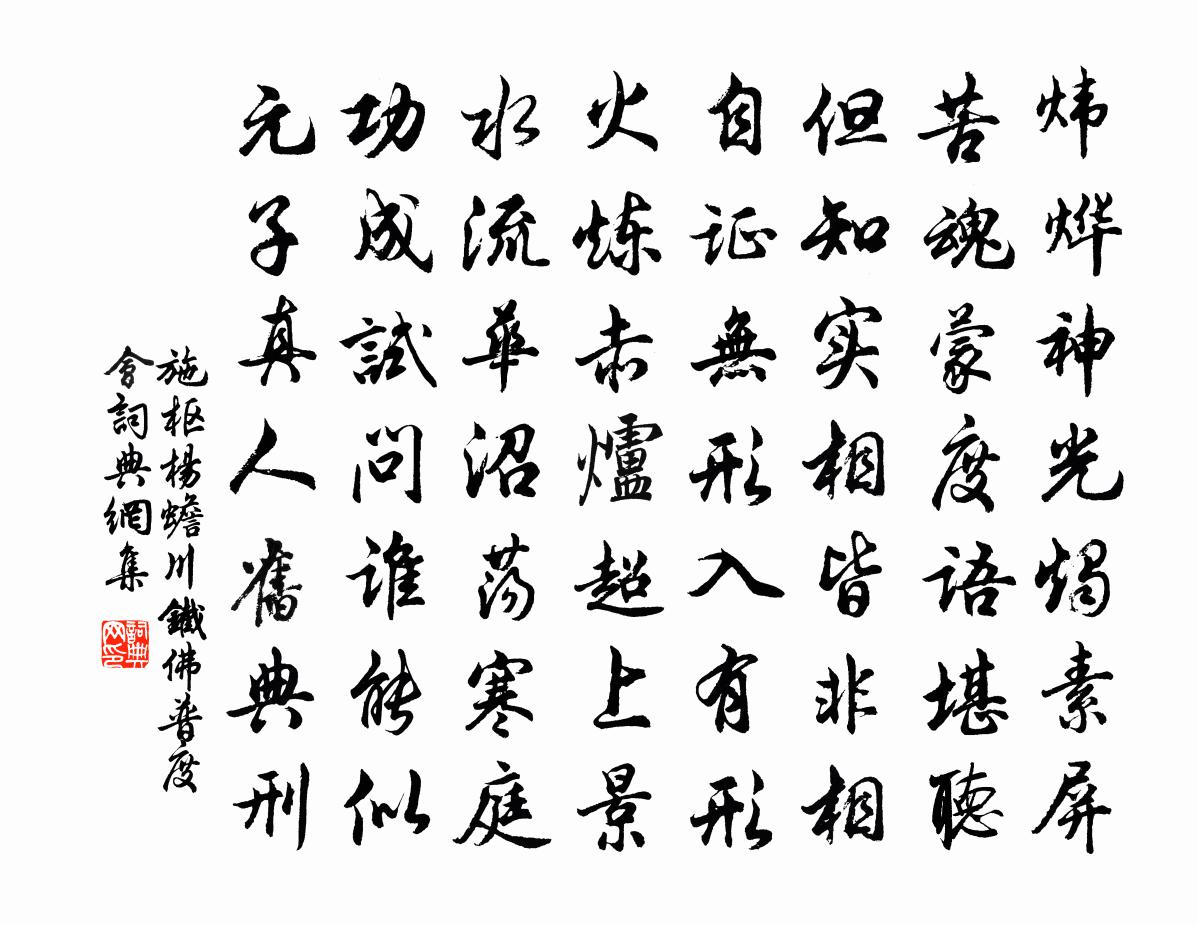 炜烨神光焗素屏
苦魂蒙度语堪聽
但知实相皆非相
自证無形入有形
火炼赤爐超上景
水流華沼荡寒庭
功成試问谁能似
元子真人舊典刑
施枢杨蟾川鐵佛普度
會詞典網集
詞典网印